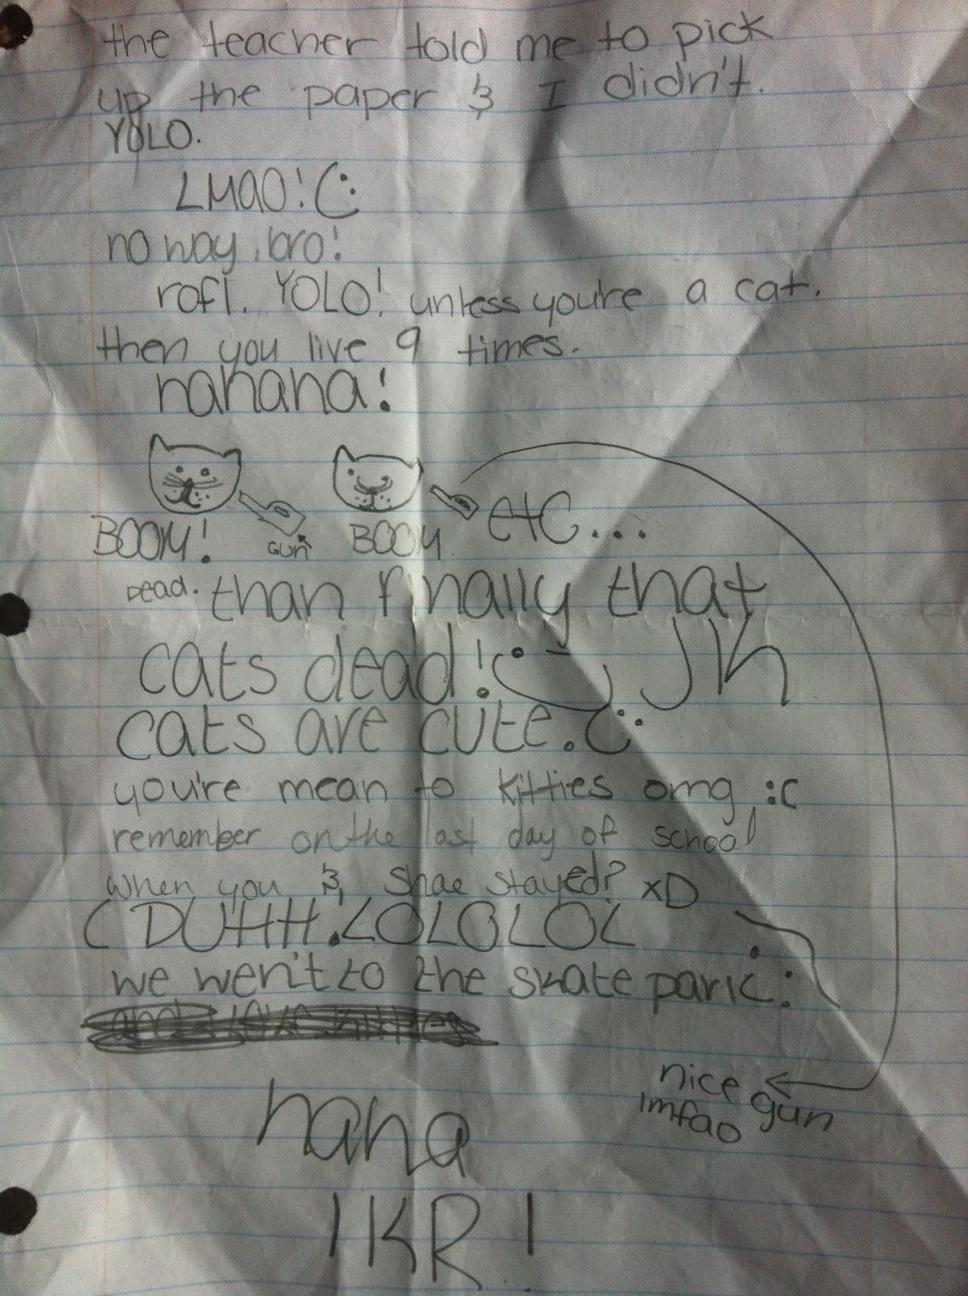 the teacher told me to pick
up the paper & I didn't.
YOLO.
LMAO! (:
no way, bro!
rofl. YOLO! unless you're a cat.
then you live 9 times.
hahaha!
BOOM! GUN BOOM etc...
Dead. than finally that
cats dead! (: JK
cats are cute. (:
you're mean to kitties omg, :c
remember on the last day of school
when you & Shae stayed? xD
( DUHH. LOLOLOL
we wen't to the skate park. :
haha
nice gun
lmfao
IKR!